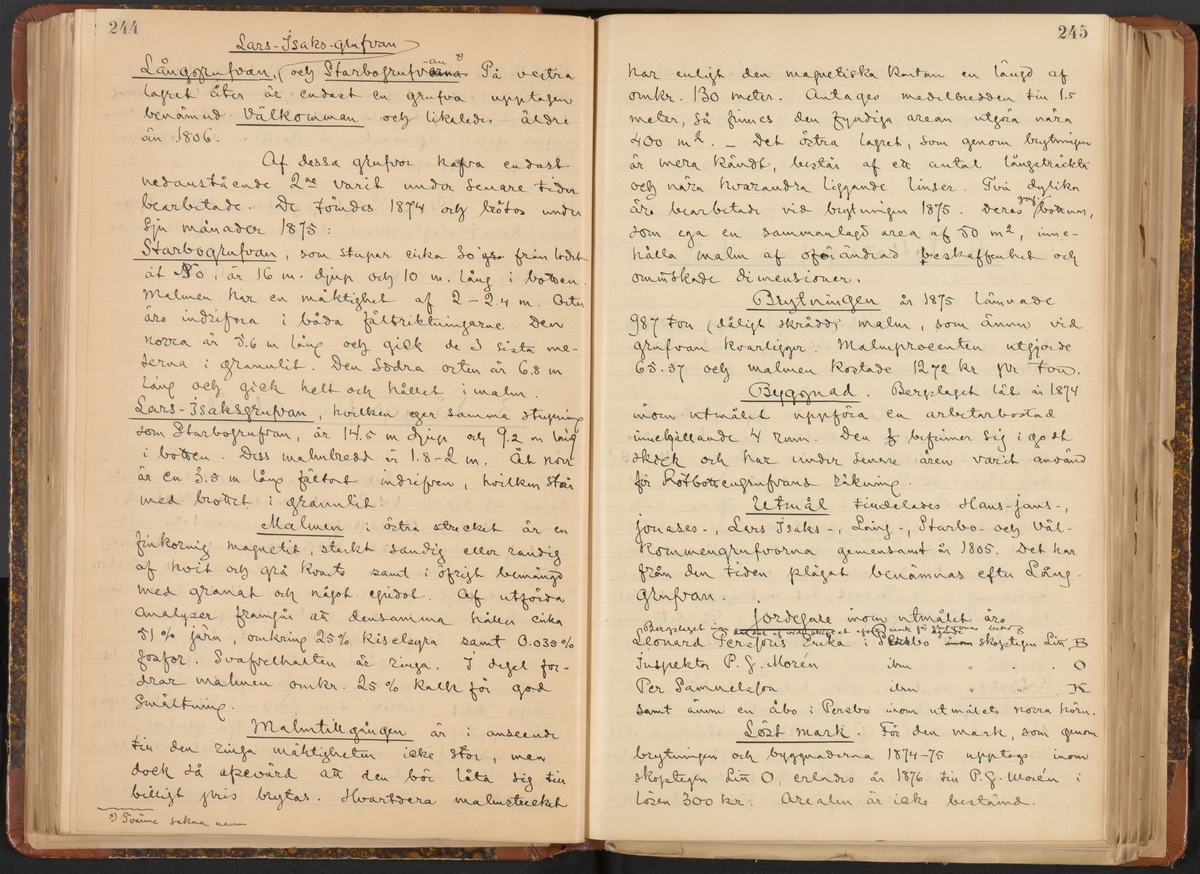 244
Lars-Isaks-grufvan
Långgrufvan, och Starbogrufvorna -an *) På vestra
lagret åter är endast en grufva upptagen
benämnd Välkomman och likaledes äldre
än 1806.
Af dessa grufvor hafva endast
nedanstående 2ne varit under senare tider
bearbetade. De länsades 1874 och bröts under
sju månader 1875:
Starbogrufvan, som stupar cirka 30 gr från lodet
åt NO, är 16 m. djup och 10 m. lång i botten.
Malmen har en mäktighet af 2-2.4 m. Orter
äro indrifna i båda fältriktningarne. Den
norra är 3.6 m lång och gick de 3 sista me-
terna i granulit. Den södra orten är 6.8 m
lång och gick helt och hållet i malm.
Lars-Isaksgrufvan, hvilken eger samma stupning
som Starbogrufvan, är 14.5 m djup och 9.2 m lång
i botten. Dess malmbredd är 1.8-2 m. Åt norr
är en 3.5 m lång fältort indrifven, hvilken står
med bröstet i granulit.
Malmen i östra strecket är en
finkornig magnetit, starkt sandig eller randig
af hvit och grå kvarts samt i öfrigt bemängd
med granat och något epidot. Af utförda
analyser framgår att densamma håller cirka
51 % järn, omkring 25 % kiselsyra samt 0.035 %
fosfor. Svafvelhalten är ringa. I degel for-
drar malmen omkr. 25 % kalk för god
smältning.
Malmtillgången är i anseende
till den ringa mäktigheten icke stor, men
dock så afsevärd att den bör låta sig till
billigt pris brytas. Hvartdera malmstrecket
*) Tvänne sakna namn
245
har enligt den magnetiska kartan en längd af
omkr. 130 meter. Antages medelbredden till 1.5
meter, så finnes den fyndiga arean utgöra nära
400 m2. – Det östra lagret, som genom brytningen
är mera kändt, består af ett antal långsträckta
och nära hvarandra liggande linser. Två dylika
äro bearbetade vid brytningen 1875. Deras grufbottnar,
som ega en sammanlagd area af 50 m2, inne-
hålla malm af oförändrad beskaffenhet och
ominskade dimensioner.
Brytningen år 1875 lämnade
987 ton (dåligt skrädd) malm, som ännu vid
grufvan kvarligger. Malmprocenten utgjorde
65.57 och malmen kostade 12.72 kr pr ton.
Byggnad. Bergslaget lät år 1874
inom utmålet uppföra en arbetarbostad
innehållande 4 rum. Den befinner sig i godt
skick och har under senare åren varit använd
för Rotbottengrufvans räkning.
Utmål tilldelades Hans-jans-,
jonases-, Lars Isaks-, Lång-, Starbo- och Väl-
kommengrufvorna gemensamt år 1805. Det har
från den tiden plägat benämnas efter Lång-
grufvan.
Jordegare inom utmålet äro
Bergslaget
Leonard Persfors Erika i Persbo skogstegen Litt B
Inspektor P. G. Morén ibm " . O
Per Samuelsson ibm " " K
samt ännu en åbo i Persbo inom utmålets norra hörn.
Löst mark. För den mark, som genom
brytningen och byggnaderna 1874-75 upptogs inom
skogstegen Litt O, erlades år 1876 till P.G. Morén i
lösen 300 kr. Arealen är icke bestämd.